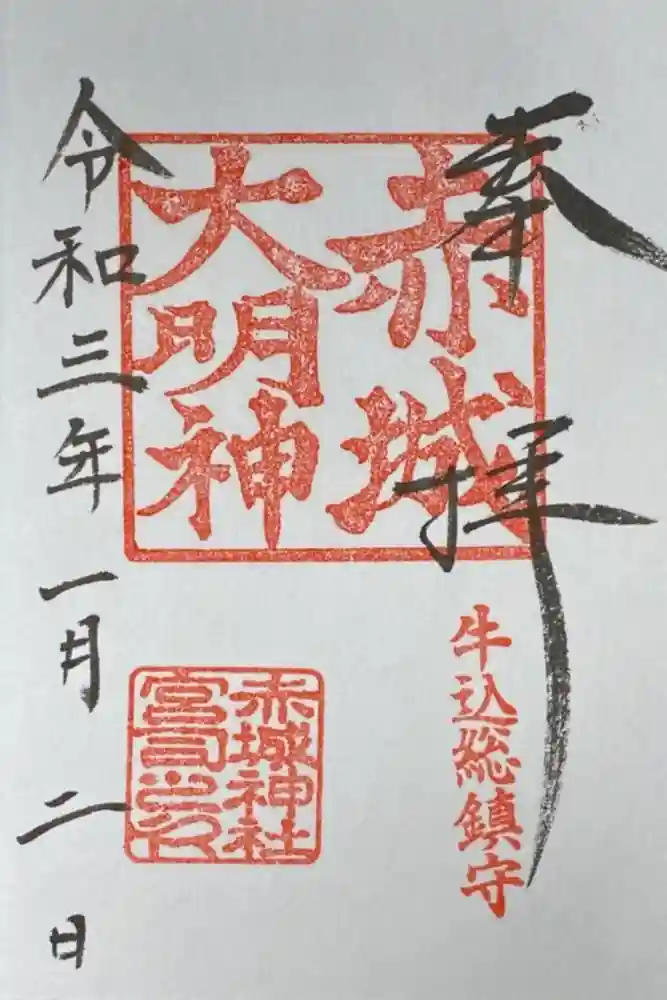 奉拝
赤城
大明神
牛込総鎮守
赤城神社
宮司之印
令和三年一月二日